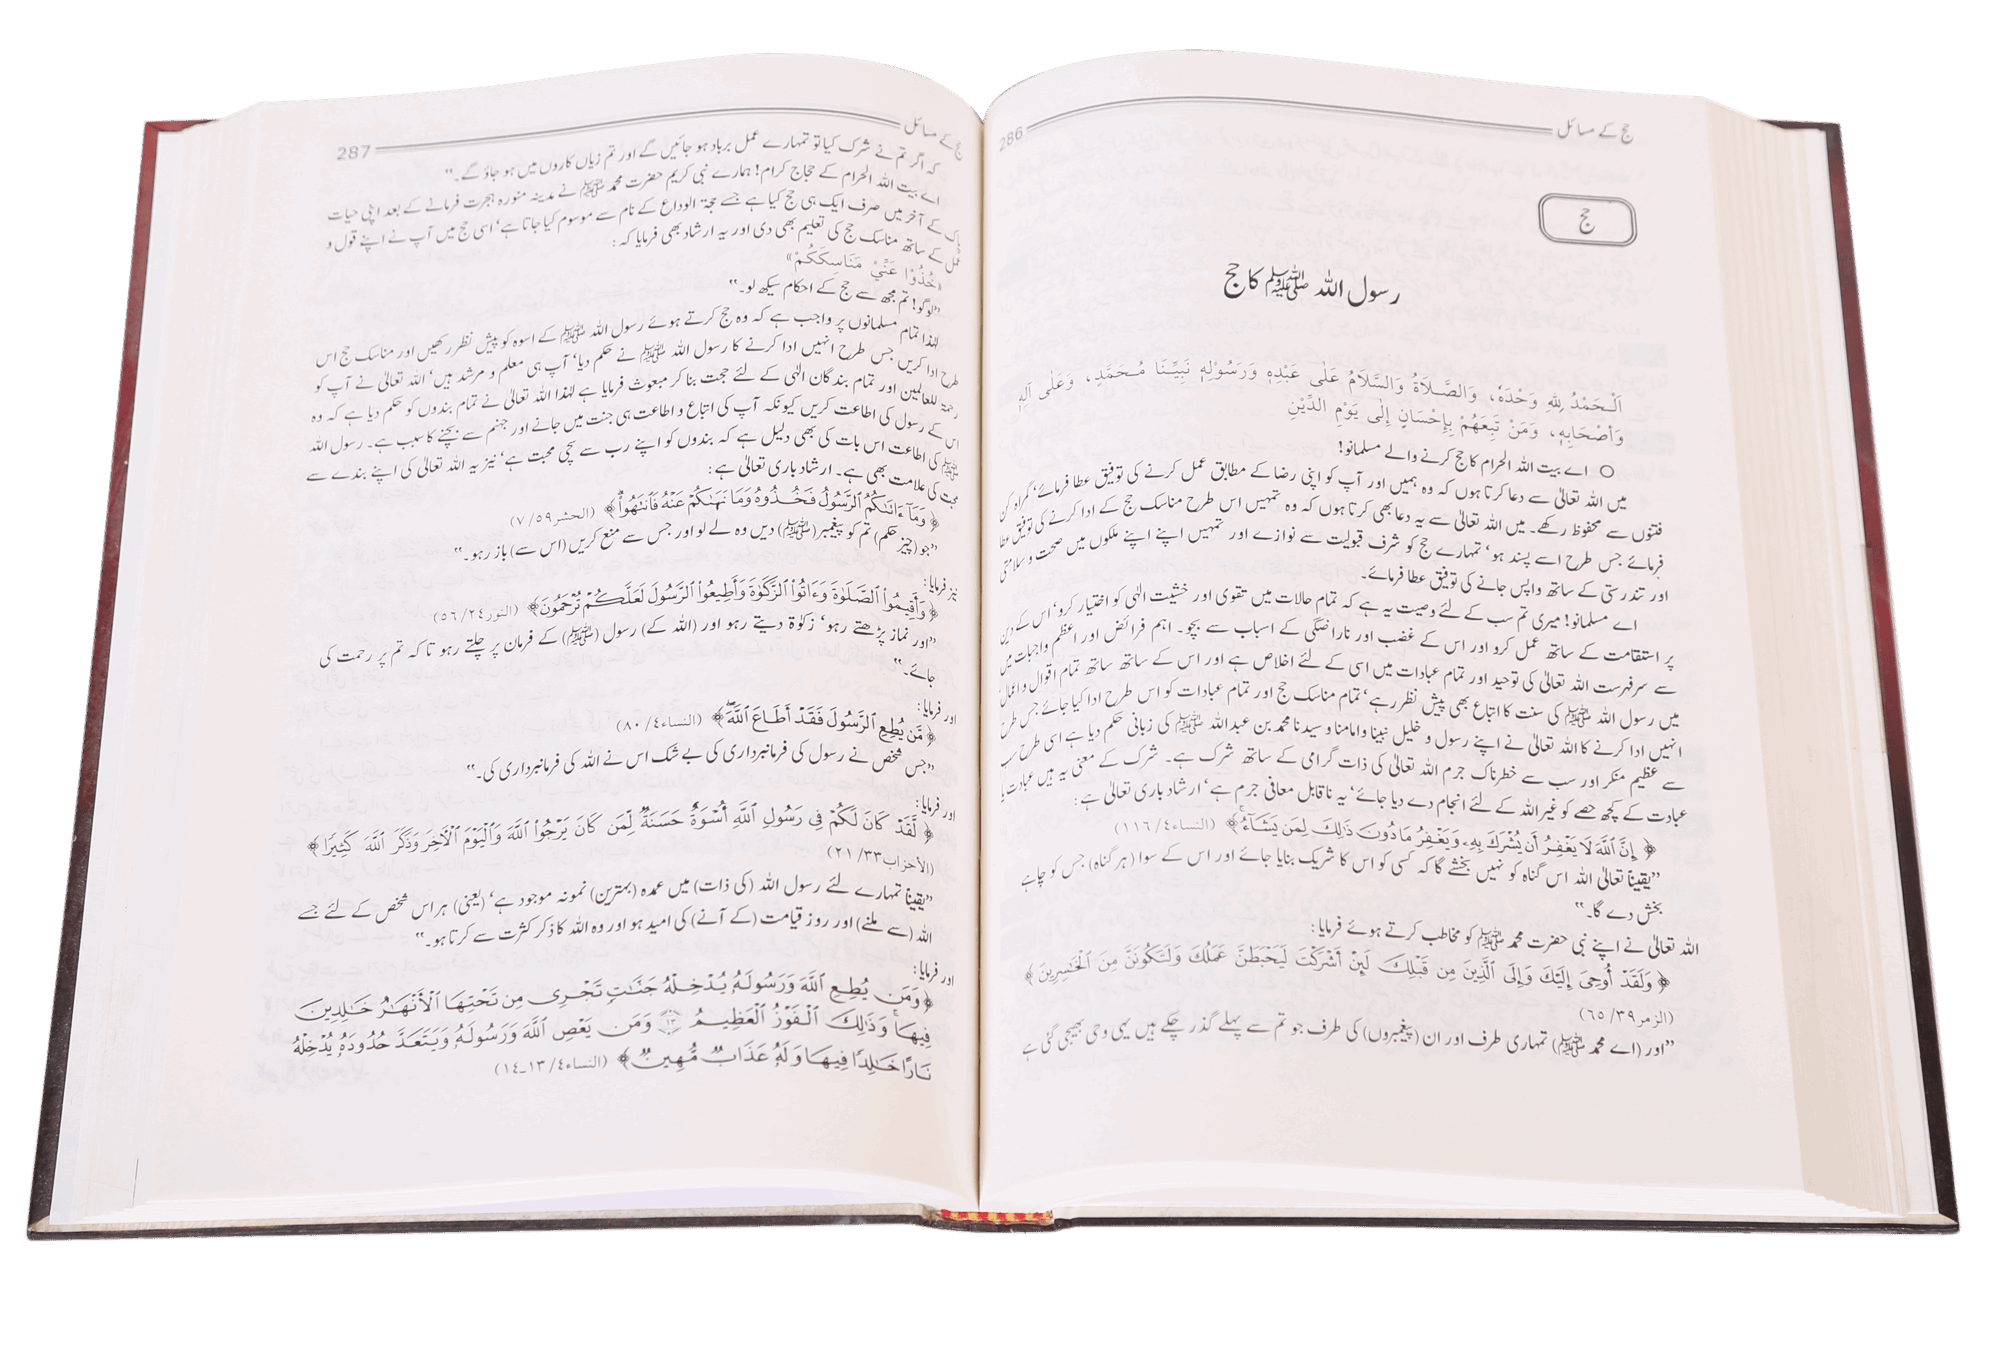 حج کے مسائل 286
حج
رسول اللہ ﷺ کا حج
اَلْحَمْدُ لِلّٰهِ وَحْدَهٗ، وَالصَّلَاةُ وَالسَّلَامُ عَلٰى عَبْدِهٖ وَرَسُوْلِهٖ نَبِيِّنَا مُحَمَّدٍ، وَعَلٰى اٰلِهٖ
وَأَصْحَابِهٖ، وَمَنْ تَبِعَهُمْ بِإِحْسَانٍ إِلٰى يَوْمِ الدِّيْنِ
○ اے بیت اللہ الحرام کا حج کرنے والے مسلمانو!
میں اللہ تعالیٰ سے دعا کرتا ہوں کہ وہ ہمیں اور آپ کو اپنی رضا کے مطابق عمل کرنے کی توفیق عطا فرمائے‘ گمراہ کن
فتنوں سے محفوظ رکھے۔ میں اللہ تعالیٰ سے یہ دعا بھی کرتا ہوں کہ وہ تمہیں اس طرح مناسک حج کے ادا کرنے کی توفیق عطا
فرمائے جس طرح اسے پسند ہو‘ تمہارے حج کو شرف قبولیت سے نوازے اور تمہیں اپنے اپنے ملکوں میں صحت و سلامتی
اور تندرستی کے ساتھ واپس جانے کی توفیق عطا فرمائے۔
اے مسلمانو! میری تم سب کے لئے وصیت یہ ہے کہ تمام حالات میں تقویٰ اور خشیت الٰہی کو اختیار کرو‘ اس کے دین
پر استقامت کے ساتھ عمل کرو اور اس کے غضب اور ناراضگی کے اسباب سے بچو۔ اہم فرائض اور اعظم واجبات میں
سے سرفہرست اللہ تعالیٰ کی توحید اور تمام عبادات میں اسی کے لئے اخلاص ہے اور اس کے ساتھ ساتھ تمام اقوال و اعمال
میں رسول اللہ ﷺ کی سنت کا اتباع بھی پیش نظر رہے‘ تمام مناسک حج اور تمام عبادات کو اس طرح ادا کیا جائے جس طرح
انہیں ادا کرنے کا اللہ تعالیٰ نے اپنے رسول و خلیل نبینا وامامنا و سیدنا محمد بن عبداللہ ﷺ کی زبانی حکم دیا ہے اسی طرح سب
سے عظیم منکر اور سب سے خطرناک جرم اللہ تعالیٰ کی ذات گرامی کے ساتھ شرک ہے۔ شرک کے معنی یہ ہیں عبادت یا
عبادت کے کچھ حصے کو غیر اللہ کے لئے انجام دے دیا جائے‘ یہ ناقابل معافی جرم ہے‘ ارشاد باری تعالیٰ ہے:
﴿ إِنَّ ٱللَّهَ لَا يَغْفِرُ أَن يُشْرَكَ بِهِۦ وَيَغْفِرُ مَا دُونَ ذَٰلِكَ لِمَن يَشَآءُ ﴾ (النساء٤/ ١١٦)
”یقیناً تعالیٰ اللہ اس گناہ کو نہیں بخشے گا کہ کسی کو اس کا شریک بنایا جائے اور اس کے سوا (ہر گناہ) جس کو چاہے
بخش دے گا۔“
اللہ تعالیٰ نے اپنے نبی حضرت محمد ﷺ کو مخاطب کرتے ہوئے فرمایا:
﴿ وَلَقَدْ أُوحِىَ إِلَيْكَ وَإِلَى ٱلَّذِينَ مِن قَبْلِكَ لَئِنْ أَشْرَكْتَ لَيَحْبَطَنَّ عَمَلُكَ وَلَتَكُونَنَّ مِنَ ٱلْخَٰسِرِينَ ﴾
(الزمر٣٩/ ٦٥)
”اور (اے محمد ﷺ) تمہاری طرف اور ان (پیغمبروں) کی طرف جو تم سے پہلے گذر چکے ہیں یہی وحی بھیجی گئی ہے
حج کے مسائل 287
کہ اگر تم نے شرک کیا تو تمہارے عمل برباد ہو جائیں گے اور تم زیاں کاروں میں ہو جاؤ گے۔“
اے بیت اللہ الحرام کے حجاج کرام! ہمارے نبی کریم حضرت محمد ﷺ نے مدینہ منورہ ہجرت فرمانے کے بعد اپنی حیات
پاک کے آخر میں صرف ایک ہی حج کیا ہے جسے حجۃ الوداع کے نام سے موسوم کیا جاتا ہے‘ اسی حج میں آپ نے اپنے قول و
عمل کے ساتھ مناسک حج کی تعلیم بھی دی اور یہ ارشاد بھی فرمایا کہ:
«خُذُوْا عَنِّيْ مَنَاسِكَكُمْ»
”لوگو! تم مجھ سے حج کے احکام سیکھ لو۔“
لہٰذا تمام مسلمانوں پر واجب ہے کہ وہ حج کرتے ہوئے رسول اللہ ﷺ کے اسوہ کو پیش نظر رکھیں اور مناسک حج اس
طرح ادا کریں جس طرح انہیں ادا کرنے کا رسول اللہ ﷺ نے حکم دیا‘ آپ ہی معلم و مرشد ہیں‘ اللہ تعالیٰ نے آپ کو
رحمۃ للعالمین اور تمام بندگان الٰہی کے لئے حجت بنا کر مبعوث فرمایا ہے لہٰذا اللہ تعالیٰ نے تمام بندوں کو حکم دیا ہے کہ وہ
اس کے رسول کی اطاعت کریں کیونکہ آپ کی اتباع و اطاعت ہی جنت میں جانے اور جہنم سے بچنے کا سبب ہے۔ رسول اللہ
ﷺ کی اطاعت اس بات کی بھی دلیل ہے کہ بندوں کو اپنے رب سے سچی محبت ہے‘ نیز یہ اللہ تعالیٰ کی اپنے بندے سے
محبت کی علامت بھی ہے۔ ارشاد باری تعالیٰ ہے:
﴿ وَمَآ ءَاتَىٰكُمُ ٱلرَّسُولُ فَخُذُوهُ وَمَا نَهَىٰكُمْ عَنْهُ فَٱنتَهُوا۟ ﴾ (الحشر٥٩/ ٧)
”جو (چیز حکم) تم کو پیغمبر (ﷺ) دیں وہ لے لو اور جس سے منع کریں (اس سے) باز رہو۔“
نیز فرمایا:
﴿ وَأَقِيمُوا۟ ٱلصَّلَوٰةَ وَءَاتُوا۟ ٱلزَّكَوٰةَ وَأَطِيعُوا۟ ٱلرَّسُولَ لَعَلَّكُمْ تُرْحَمُونَ ﴾ (النور٢٤/ ٥٦)
”اور نماز پڑھتے رہو‘ زکوٰۃ دیتے رہو اور (اللہ کے) رسول (ﷺ) کے فرمان پر چلتے رہو تا کہ تم پر رحمت کی
جائے۔“
اور فرمایا:
﴿ مَّن يُطِعِ ٱلرَّسُولَ فَقَدْ أَطَاعَ ٱللَّهَ ﴾ (النساء٤/ ٨٠)
”جس شخص نے رسول کی فرمانبرداری کی بے شک اس نے اللہ کی فرمانبرداری کی۔“
اور فرمایا:
﴿ لَّقَدْ كَانَ لَكُمْ فِى رَسُولِ ٱللَّهِ أُسْوَةٌ حَسَنَةٌ لِّمَن كَانَ يَرْجُوا۟ ٱللَّهَ وَٱلْيَوْمَ ٱلْأَخِرَ وَذَكَرَ ٱللَّهَ كَثِيرًا ﴾
(الأحزاب٣٣/ ٢١)
”یقیناً تمہارے لئے رسول اللہ (کی ذات) میں عمدہ (بہترین) نمونہ موجود ہے‘ (یعنی) ہر اس شخص کے لئے جسے
اللہ (سے ملنے) اور روز قیامت (کے آنے) کی امید ہو اور وہ اللہ کا ذکر کثرت سے کرتا ہو۔“
اور فرمایا:
﴿ وَمَن يُطِعِ ٱللَّهَ وَرَسُولَهُۥ يُدْخِلْهُ جَنَّٰتٍ تَجْرِى مِن تَحْتِهَا ٱلْأَنْهَٰرُ خَٰلِدِينَ
فِيهَا ۚ وَذَٰلِكَ ٱلْفَوْزُ ٱلْعَظِيمُ ١٣ وَمَن يَعْصِ ٱللَّهَ وَرَسُولَهُۥ وَيَتَعَدَّ حُدُودَهُۥ يُدْخِلْهُ
نَارًا خَٰلِدًا فِيهَا وَلَهُۥ عَذَابٌ مُّهِينٌ ﴾ (النساء٤/ ١٣۔١٤)